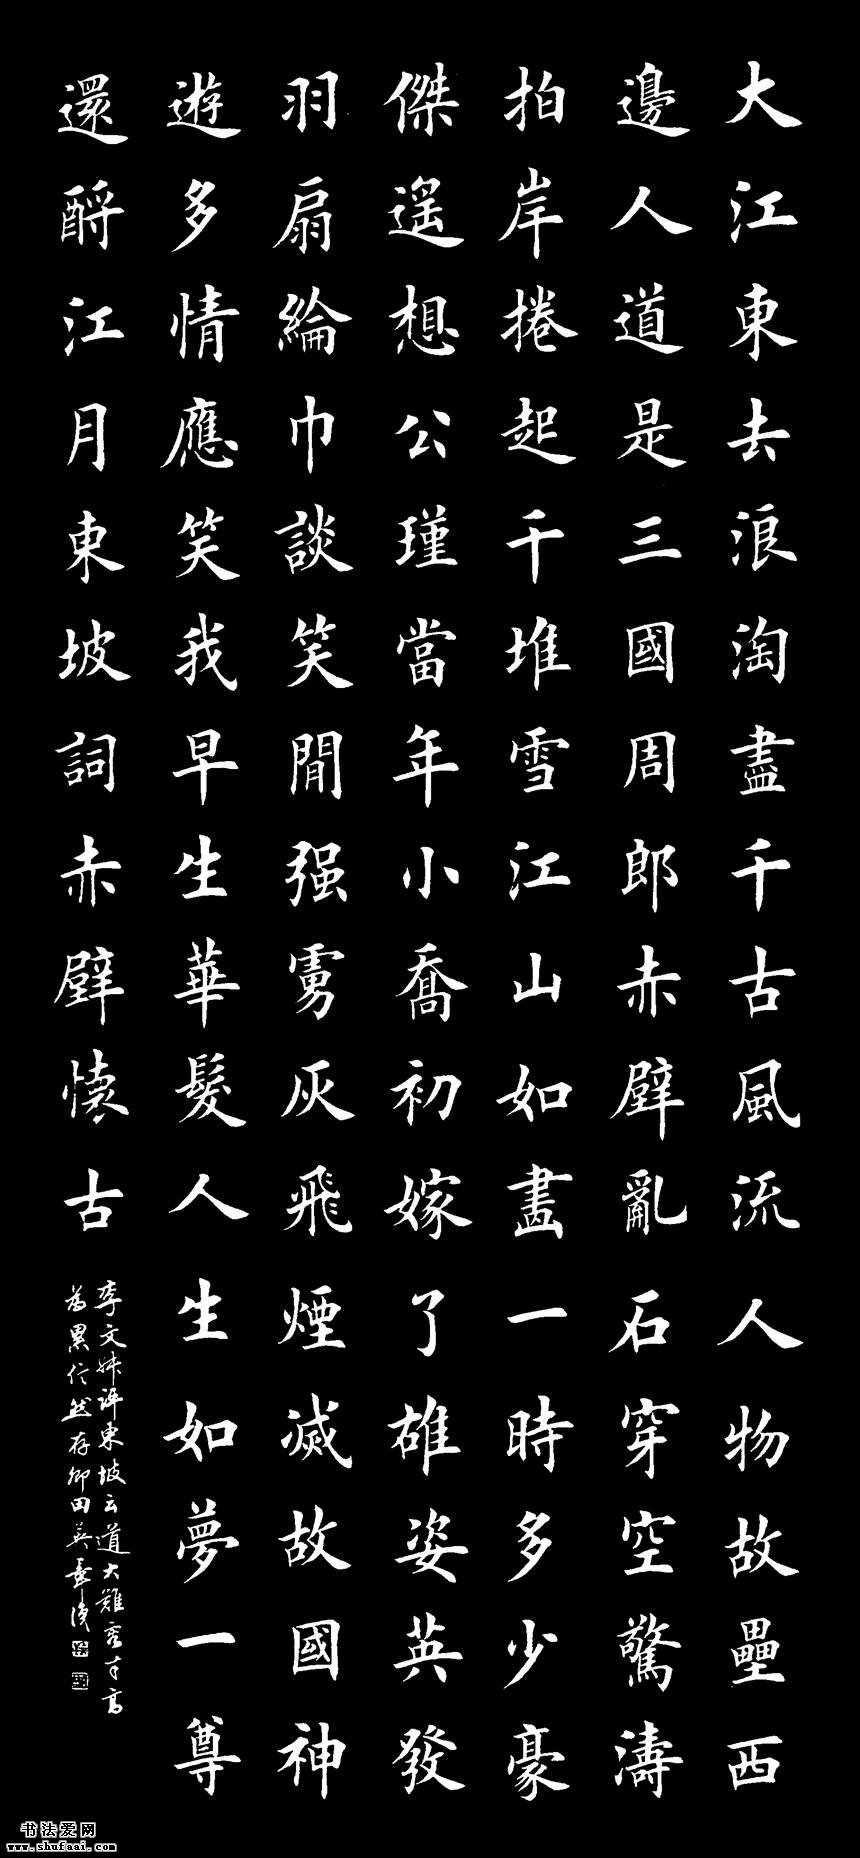 大江東去浪淘盡千古風流人物故壘西
邊人道是三國周郎赤壁亂石穿空驚濤
拍岸捲起千堆雪江山如畫一時多少豪
傑遥想公瑾當年小喬初嫁了雄姿英發
羽扇綸巾談笑閒强虜灰飛煙滅故國神
遊多情應笑我早生華髮人生如夢一尊
還酹江月東坡詞赤壁懷古
李文評東坡云道大難容才高
為累信然存卿田英章
书法爱网
www.shufaai.com